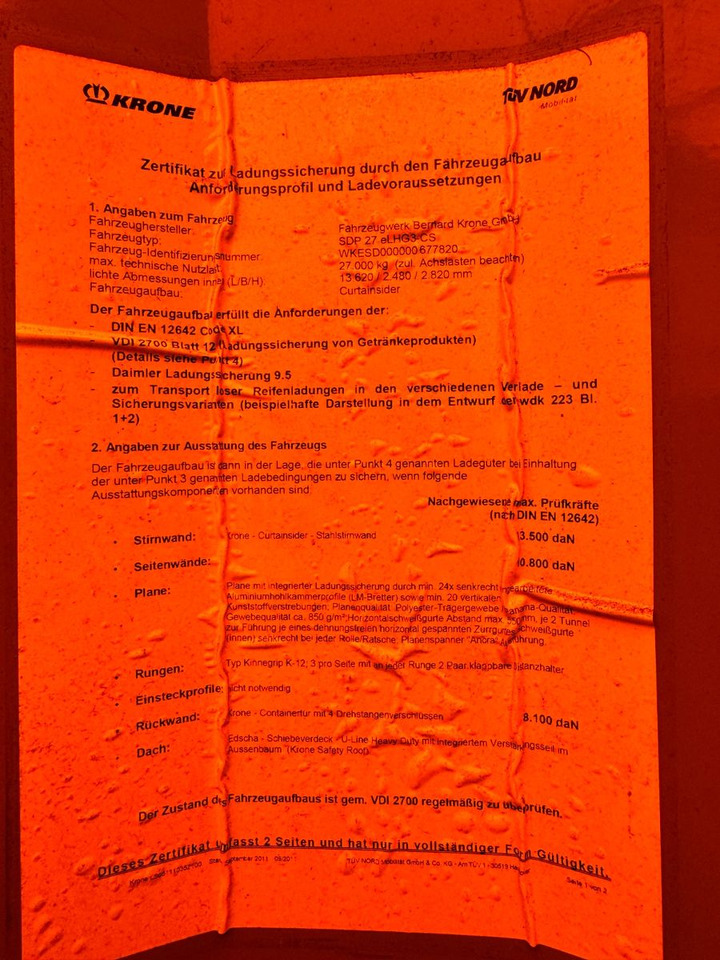 KRONE
TÜV NORD
Mobilität
Zertifikat zur Ladungssicherung durch den Fahrzeugaufbau
Anforderungsprofil und Ladevoraussetzungen
1. Angaben zum Fahrzeug
Fahrzeughersteller: Fahrzeugwerk Bernard Krone GmbH
Fahrzeugtyp: SDP 27 eLHG3-CS
Fahrzeug-Identifizierungsnummer: WKESD000000677820
max. technische Nutzlast: 27.000 kg (zul. Achslasten beachten)
lichte Abmessungen innen (L/B/H): 13.620 / 2.480 / 2.820 mm
Fahrzeugaufbau: Curtainsider
Der Fahrzeugaufbau erfüllt die Anforderungen der:
- DIN EN 12642 Code XL
- VDI 2700 Blatt 12 (Ladungssicherung von Getränkeprodukten)
(Details siehe Punkt 4)
- Daimler Ladungssicherung 9.5
- zum Transport loser Reifenladungen in den verschiedenen Verlade – und
Sicherungsvarianten (beispielhafte Darstellung in dem Entwurf der wdk 223 Bl.
1+2)
2. Angaben zur Ausstattung des Fahrzeugs
Der Fahrzeugaufbau ist dann in der Lage, die unter Punkt 4 genannten Ladegüter bei Einhaltung
der unter Punkt 3 genannten Ladebedingungen zu sichern, wenn folgende
Ausstattungskomponenten vorhanden sind:
Nachgewiesene max. Prüfkräfte
(nach DIN EN 12642)
• Stirnwand: Krone - Curtainsider - Stahlstirnwand 13.500 daN
• Seitenwände: 10.800 daN
• Plane: Plane mit integrierter Ladungssicherung durch min. 24x senkrecht
Aluminiumhohlkammerprofile (LM-Bretter) sowie min. 20 vertikalen
Kunststoffverstrebungen; Planenqualität: Polyester-Trägergewebe Panama-Qualität
Gewebequalität ca. 850 g/m² Horizontalschweißgurte Abstand max. mm, je 2 Tunnel
zur Führung je eines dehnungsfreien horizontal gespannten Zurrgurtes schweißgurte
(innen) senkrecht bei jeder Rolle/Ratsche, Planenspanner "Ancra" Ausführung.
• Rungen: Typ Kinnegrip K-12, 3 pro Seite mit an jeder Runge 2 Paar klappbare
• Einsteckprofile: nicht notwendig
• Rückwand: Krone - Containertür mit 4 Drehstangenverschlüssen 8.100 daN
• Dach: Edscha - Schiebeverdeck - U-Line Heavy Duty mit integriertem Verstärkungsseil im
Aussenbaum (Krone Safety Roof)
Der Zustand des Fahrzeugaufbaus ist gem. VDI 2700 regelmäßig zu überprüfen.
Dieses Zertifikat umfasst 2 Seiten und hat nur in vollständiger Form Gültigkeit.
Stand September 2011 TÜV NORD Mobilität GmbH & Co. KG - Am TÜV 1 - 30519 Hannover Seite 1 von 2